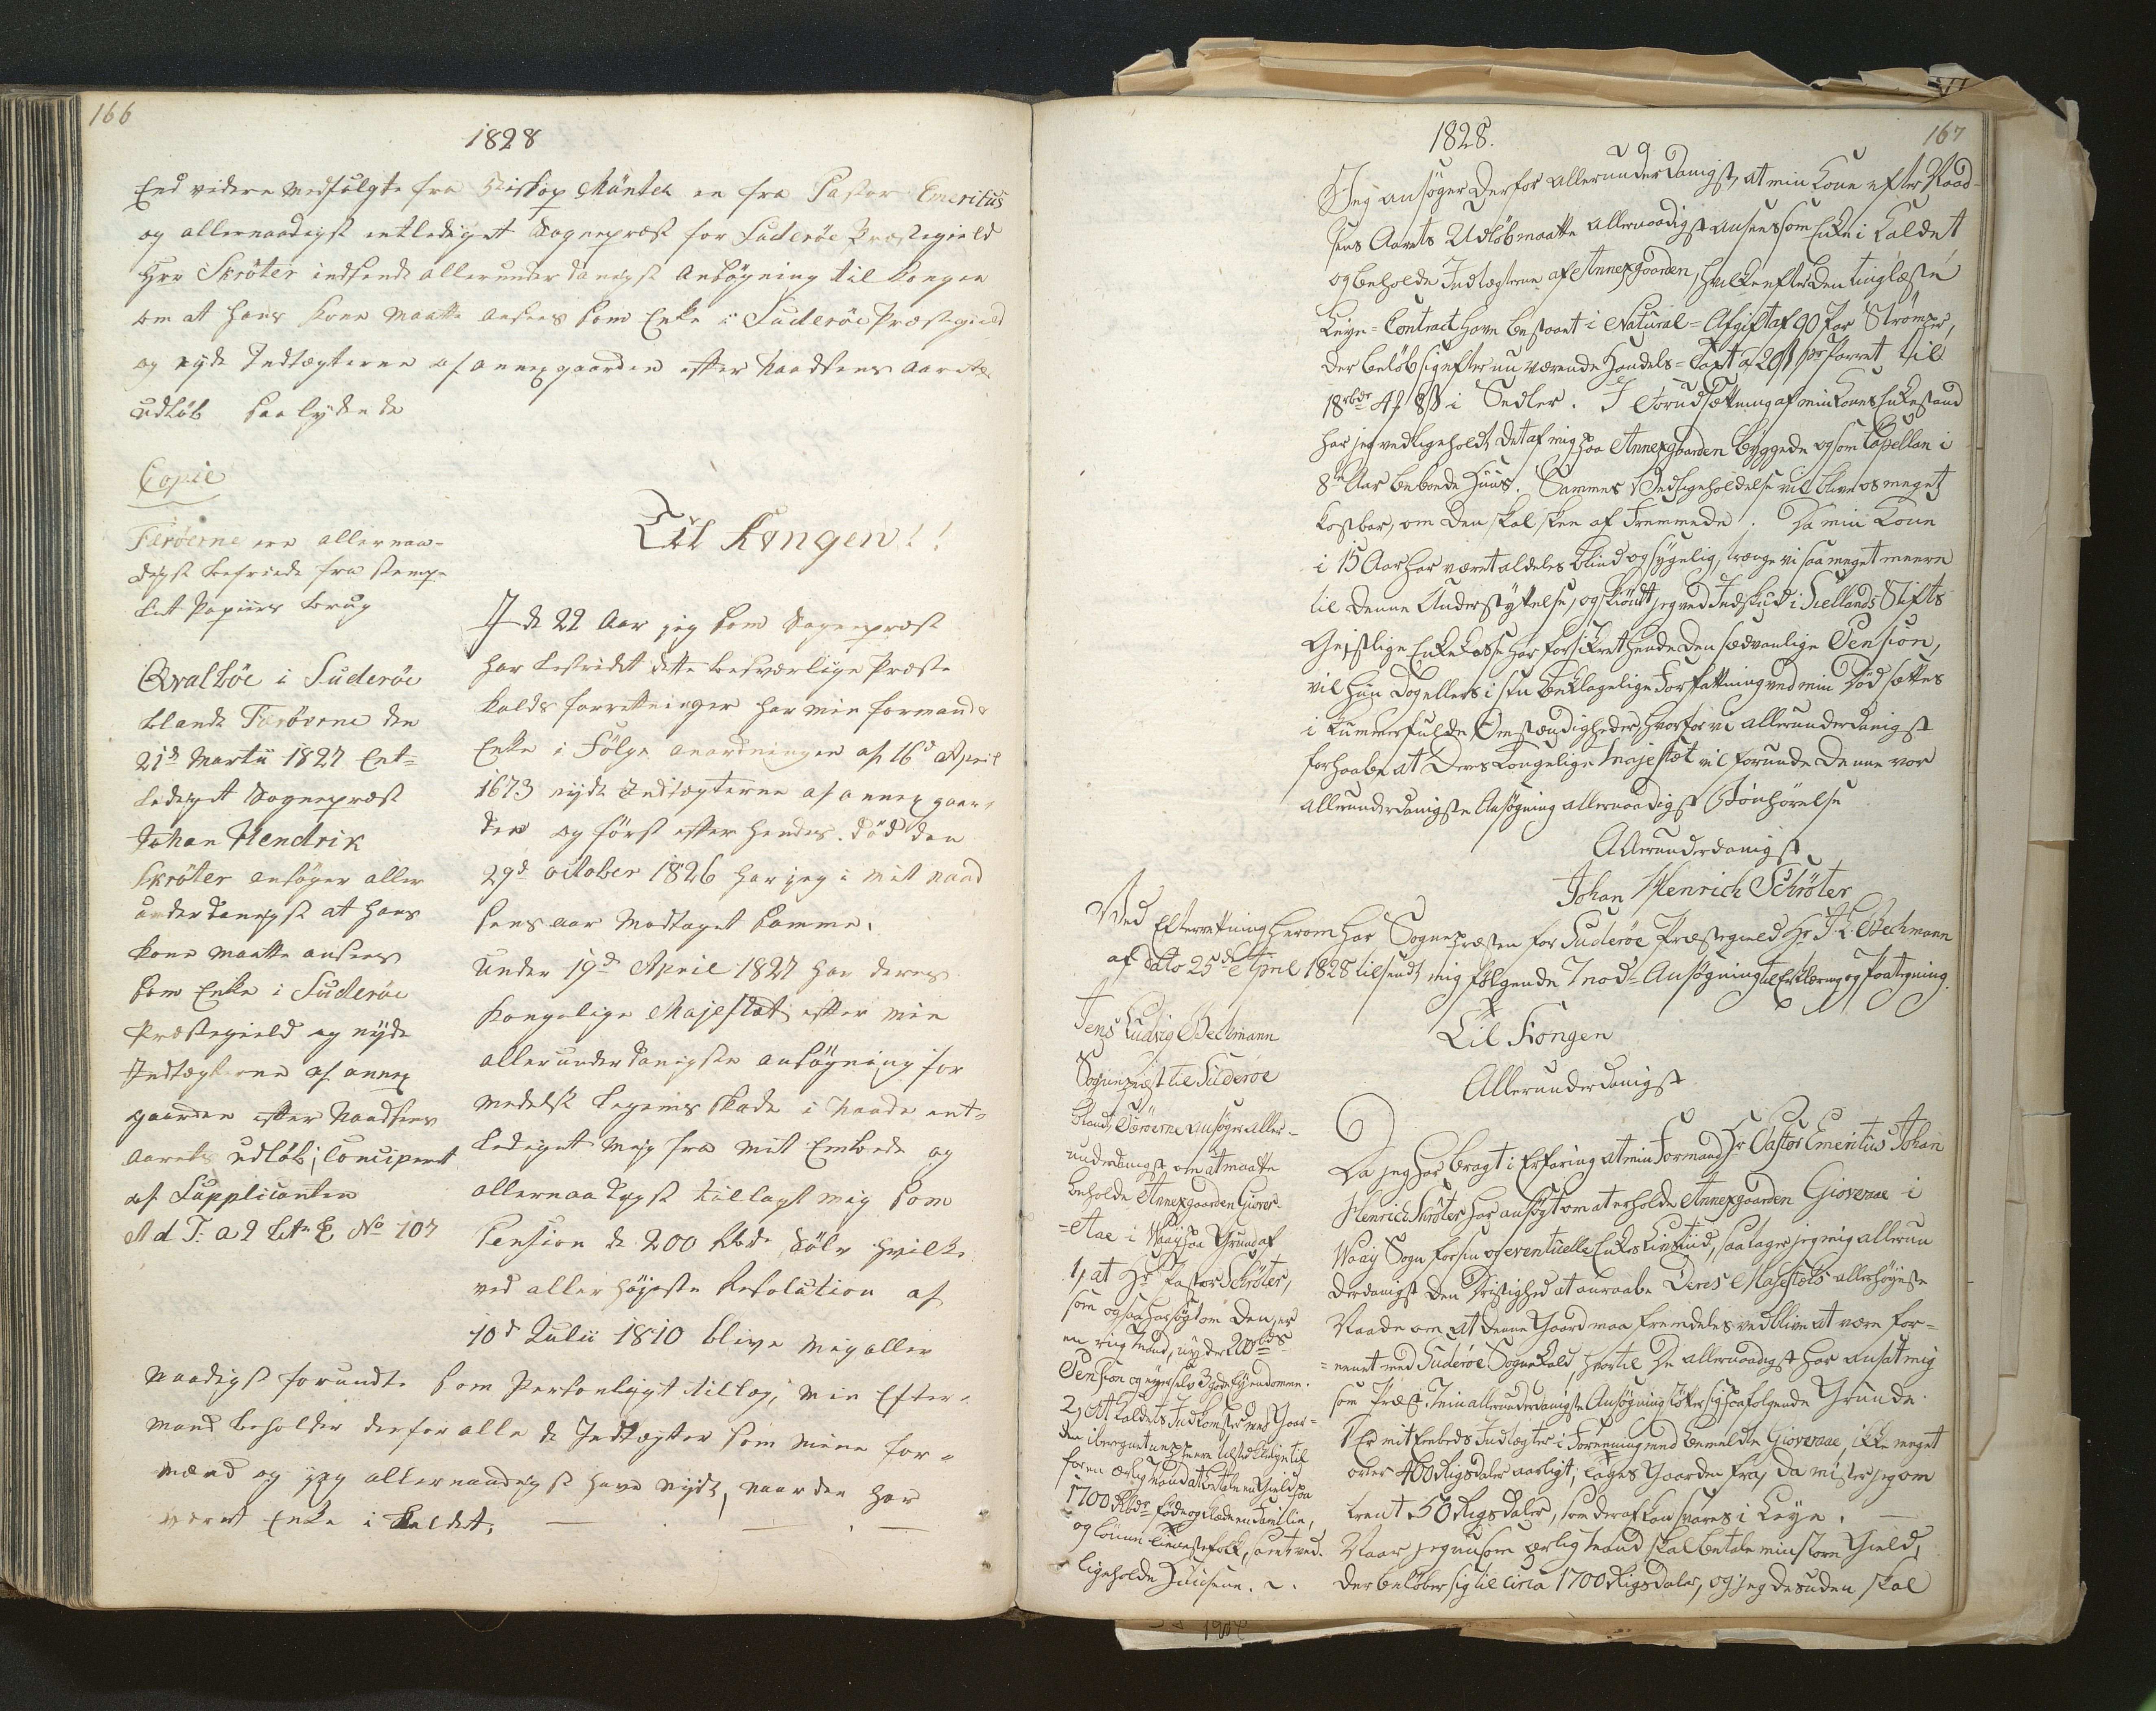 166
1828
End videre medfulgte fra Biskop Münter en fra Pastor Emeritus
og allernaadigst entlediget Sognepræst for Suderöe Præstegield
Hrr Skröter indsendt allerunderdanigst Ansögning til Kongen
om at hans Kone maatte ansees som Enke i Suderöe Præstegield
og nyde Indtægterne af annexgaarden efter Naadsens Aarets
udløb saa lydende
Copie
Færöerne ere allernaa-
digst befriede fra stemp-
let Papiirs brug
Qvalböe i Suderöe
blandt Færöerne den
21d Martii 1827 Ent-
lediget Sognepræst
Johan Hendrik
Skröter ansöger aller
underdanigst at hans
Kone maatte ansees
som Enke i Suderöe
Præstegield og nyde
Indtægterne af annex
gaarden efter Naadsens
Aarets udløb; Concipert
af Supplicanten
Til Kongen!!
I de 22 Aar jeg som Sognepræst
har bestridt dette besværlige Præste
kalds forretninger har min formands
Enke i Fölge anordningen af 16d April
1673 nydt Indtægterne af annexgaar-
den og först efter hendes Död den
29d october 1826 har jeg i mit naad
sens aar modtaget samme.
Under 19d April 1827 har deres
Kongelige Majestæt efter min
allerunderdanigste ansögning for
medelst Legems skade i Naade ent-
lediget mig fra mit Embede og
allernaadigst tillagt mig som
Pension de 200 Rbdr Sölv hvilke
ved allerhöjeste Resolution af
10d Julii 1810 blive mig aller
naadigst forundte som Personligt tillæg; min Efter-
mand beholder derfor alle de Indtægter som mine for-
mænd og jeg allernaadigst have nydt, naar der har
været Enke i Kaldet.
167
1828.
Jeg ansöger derfor allerunderdanigst, at min Kone efter Naad-
sens Aarets Udlöb maatte allernaadigst ansees som Enke i Kaldet
og beholde Indtægterne af Annexgaarden, hvilke efter den tinglæste
Leye-Contract have bestaaet i Natural-Afgift af 90 Par Strömper,
der belöb sig efter nu værende Handels-Taxt a 20ß pr Parret til
18rbdr 4 8ß i Sedler. I Forudsætning af min Kones Enkestand
har jeg vedligeholdt det af mig paa Annexgaarden byggede og som Capellan i
8te Aar beboede Huus. Sammes Vedligeholdelse vil blive os meget
kostbar, om den skal skee af Fremmede. Da min Kone
i 15 Aar har været aldeles blind og sygelig, trænge vi saa meget meere
til denne Understöttelse, og skiöndt jeg ved Indskud i Siellands Stifts
Geistlige Enkekasse har forsikret hende den sædvanlige Pension,
vil hun dog ellers i sin beklagelige Forfatning ved min Död sættes
i kummerfulde Omstændigheder, hvorfor vi allerunderdanigst
forhaabe at Deres Kongelige Majestæt vil forunde denne vor
allerunderdanigste Ansögning allernaadigst Bönhörelse
Allerunderdanigst
Johan Henrich Schröter
Ved Efterretning herom har Sognepræsten for Suderöe Præstegield Hr J. L. Bechmann
af dato 25de April 1828 tilsendt mig fölgende Mod-Ansögning til Erklæring og Paategning.
Jens Ludvig Bechmann
Sognepræst til Suderöe
blandt Færöerne ansöger aller-
underdanigst om at maatte
beholde Annexgaarden Giover-
=Aae i Waaj paa Grund af
1, at Hr Pastor Schröter,
som ogsaa har sögt om den, er
en riig Mand, nyder 200 rbds
Pension og ejer selv 3 gode Ejendomme.
2, At Kaldets Indkomster med Gaar-
den iberegnet neppe ere tilstrækkelige til
for en ærlig Mand at betale en Gield paa
1700 Rbdr föde og klæde en Familie,
og lönne Tienestefolk, samt ved-
ligeholde Huusene.
Til Kongen
Allerunderdanigst
Da jeg har bragt i Erfaring at min Formand Hr Pastor Emeritus Johan
Henrich Schröter har ansögt om at erholde Annexgaarden Gioveraae i
Waaj Sogn for sin og eventuelle Enkes Livstiid, saa tager jeg mig allerun
derdanigst den Dristighed at anraabe Deres Majestæts allerhöjeste
Naade om, at denne Gaard maa fremdeles vedblive at være for-
=enet med Suderöe Sognekald hvortil De allernaadigst har ansat mig
som Præst. Min allerunderdanigste Ansögning stötter sig paa fölgende Grunde.
Er mit Embeds Indtægter i Forening med bemeldte Gioveraae, ikke meget
over 400 Rigsdaler aarligt; tages Gaarden fra, da mister jeg om
trent 50 Rigsdaler, som deraf kan svares i Leye.
Naar jeg nu som ærlig Mand skal betale min store Gield,
der belöber sig til circa 1700 Rigsdaler, og jeg desuden skal